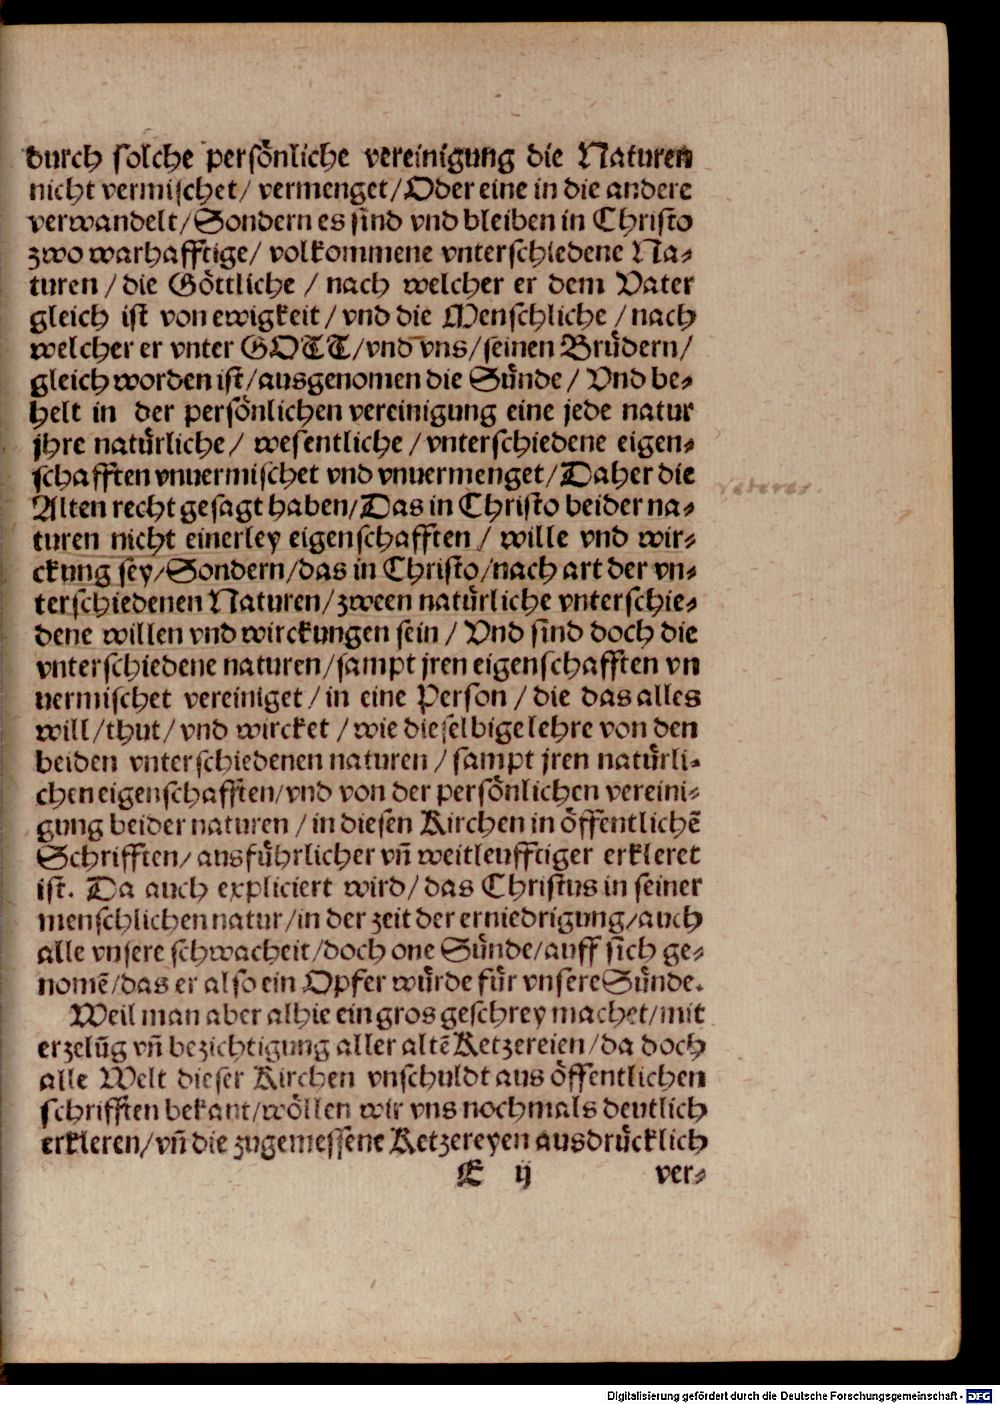 durch solche persönliche vereinigung die Naturen
nicht vermischet/ vermenget/Oder eine in die andere
verwandelt/Sondern es sind vnd bleiben in Christo
zwo warhafftige/ volkommene vnterschiedene Na⸗
turen /die Göttliche / nach welcher er dem Vater
gleich ist von ewigkeit/vnd die Menschliche /nach
welcher er vnter GOTT/vnd vns/seinen Brüdern/
gleich worden ist/ausgenomen die Sünde/ Vnd be⸗
helt in der persönlichen vereinigung eine jede natur
jhre natürliche/ wesentliche /vnterschiedene eigen⸗
schafften vnuermischet vnd vnuermenget/Daher die
Alten recht gesagt haben/Das in Christo beider na⸗
turen nicht einerley eigenschafften / wille vnd wir⸗
ckung sey/Sondern/das in Christo/nach art der vn⸗
terschiedenen Naturen/zween natürliche vnterschie⸗
dene willen vnd wirckungen sein / Vnd sind doch die
vnterschiedene naturen/sampt jren eigenschafften vn
uermischet vereiniget/in eine Person /die das alles
will/thut/vnd wircket /wie dieselbige lehre von den
beiden vnterschiedenen naturen /sampt jren natürli⸗
chen eigenschafften/vnd von der persönlichen vereini⸗
gung beider naturen /in diesen Kirchen in öffentlichẽ
Schrifften/ausführlicher vñ weitleufftiger erkleret
ist. Da auch expliciert wird/das Christus in seiner
menschlichen natur/in der zeit der erniedrigung/auch
alle vnsere schwacheit/doch one Sünde/auff sich ge⸗
nomẽ/das er also ein Opfer würde für vnsere Sünde.
Weil man aber alhie ein gros geschrey machet/mit
erzelũg vñ bezichtigung aller altẽ Ketzereien/da doch
alle Welt dieser Kirchen vnschuldt aus öffentlichen
schrifften bekant/wöllen wir vns nochmals deutlich
erkleren/vñ die zugemessene Ketzereyen ausdrücklich
E ij ver⸗
Veteres.
Digitalisierung gefördert durch die Deutsche Forschungsgemeinschaft - DFG